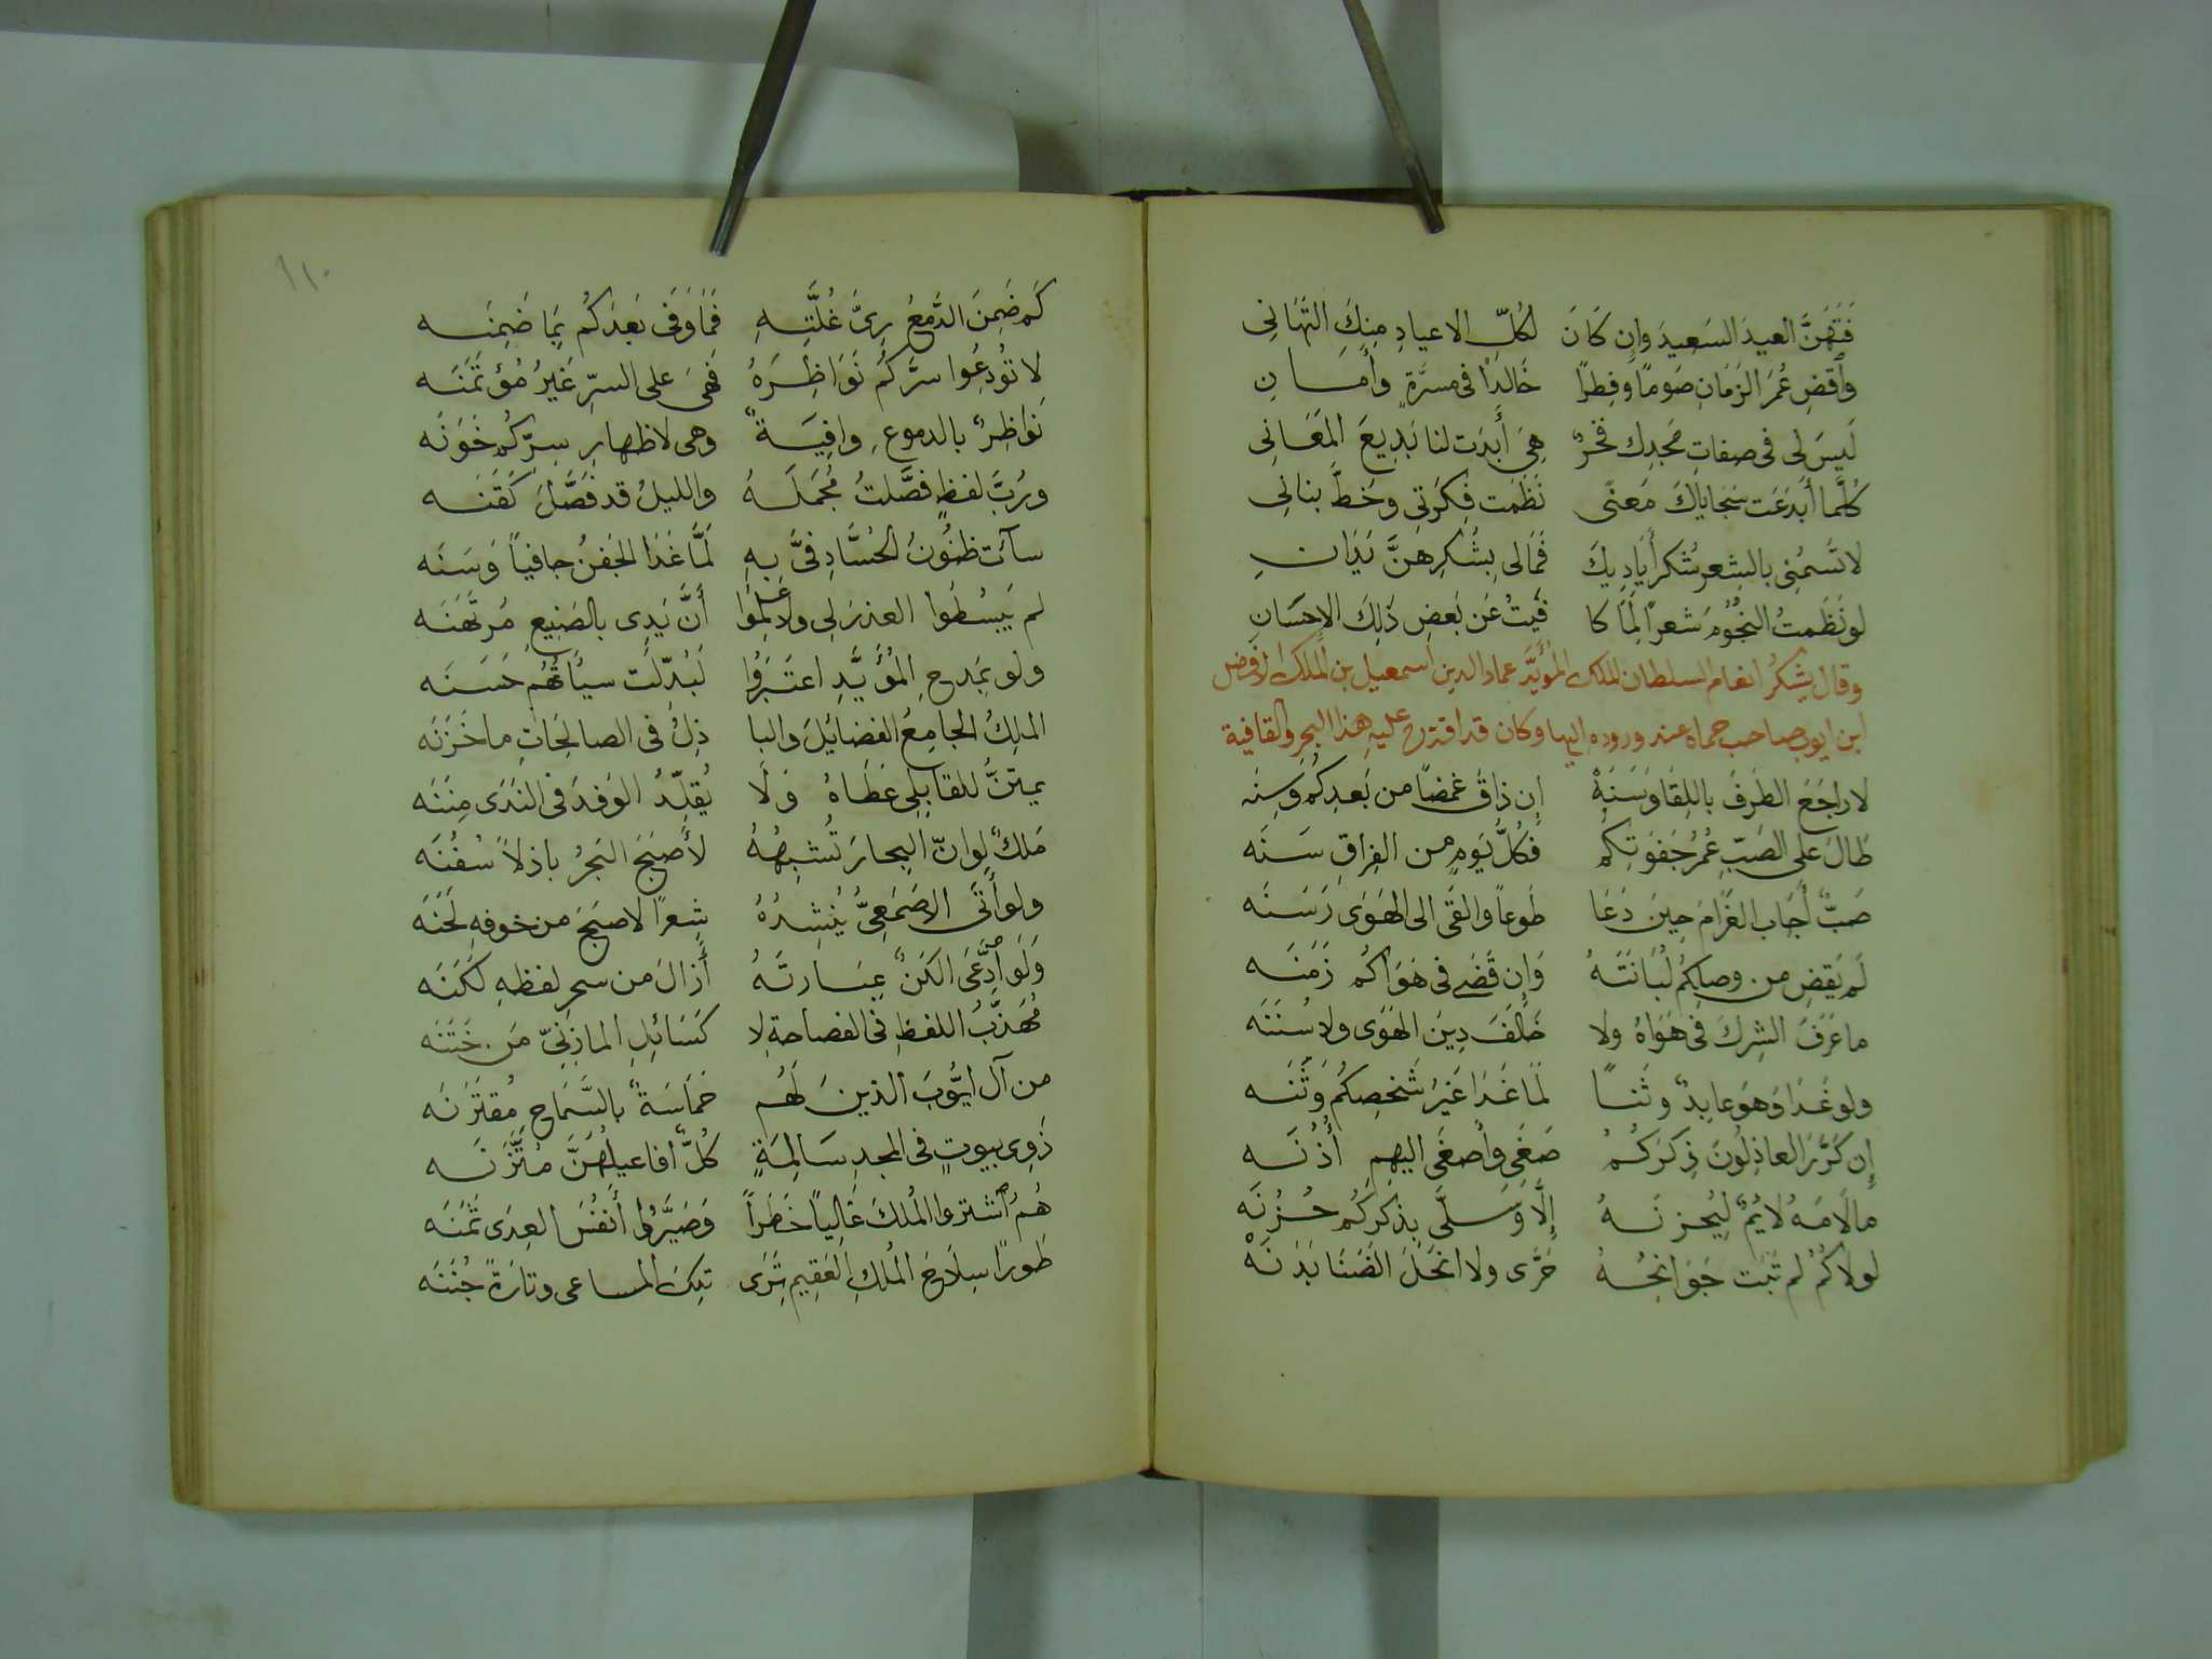 فَتَهَنَّ العيدَ السَعيدَ وإن كَانَ لكُلِّ الاعيادِ مِنكَ التَهَانى
وٱقضِ عُمرَ الزَمَانِ صَومًا وفِطرًا خَالدًا فى مسرّةٍ وأمَانِ
لَيسَ لى فى صِفاتِ مَجدِك فخرٌ هِىَ أَبدَت لنا بَديعَ المَعَانى
كلّما أَبدَعَت سَجَاياكَ مَعنًى نَظَمَت فِكرَتى وخَطَّ بنانى
لا تَسُمْنى بالشِعرِ شُكرَ أَيَاديكَ فَمَالى بِشُكرِهنَّ يَدَانِ
لو نَظَمتُ النجُومَ شعراً لمَا كا فَيتُ عَن بَعضِ ذَلِكَ الإحسَانِ
وقال يشكرُ انعام السلطان الملك المؤيَّد عماد الدين اسمعيل بن الملك الافضل
ابن ايوب صاحب حماه عند وروده اليها وكان قد اقترح عليه هذا البحر والقافية
لا راجَعَ الطَرفُ باللِقَا وَسَنَهْ إن ذاقَ غمضًا من بَعدِكم وسِنه
طَالَ على الصَبّ عُمرُ جَفوَتِكم فكلُّ يَومٍ من الفِراقِ سَنَه
صَبٌّ أجَاب الغَرامَ حِينَ دَعَا طَوعاً وألقَى الى الهَوَى رَسَنَه
لَم يَقضِ من وصلِكُم لُبَانَتَهُ وَإن قَضَى فى هَوَاكُم زَمَنَه
ما عَرَفَ الشِركَ فى هَوَاهُ ولا خَالَفَ دِينَ الهَوَى ولا سُنَنَه
ولو غَدَا وَهوَ عابِدٌ وثَناً لَمَا غَدَا غَيرُ شَخصِكُم وَثَنَه
إن كَرَّرَ العاذِلُونَ ذِكرَكُمُ صَغَى وأصغَى اليهِمِ أُذُنَه
ما لَامَهُ لائمٌ لِيُحزنَهُ إلَّا وَسلَّى بِذكرِكُم حُزنَه
لولَاكُمُ لم تَبت جَوَانِحُهُ حَرَّى ولا انحَلَ الضَنَا بَدَنَهْ
١١٠
كَم ضَمِنَ الدَّمعُ رِىَّ غُلَّتِهِ فمَا وَفَى بَعدَكُم بمَا ضَمِنَه
لا تُودِعُوا سرَّكُم نَوَاظِرَهُ فهىَ على السِرِّ غَيرُ مُؤتَمَنَه
نَواظِرٌ بالدموعِ وافِيَةٌ وهى لاظهارِ سِرّكُم خَوَنَه
ورُبَّ لفظٍ فَصَّلتُ مُجمَلَهُ والليلُ قد فَصَّلَ كَفَنَه
سآئَت ظنُونُ الحُسَّادِ فىَّ بِهِ لَمَّا غَدَا الجَفنُ جافياً وَسَنَه
لم يَبسُطُوا العذرَ لى ولا علِمُوا أنَّ يَدِى بالصَنِيعِ مُرتَهَنَه
ولو بمَدحِ المُؤيَّدِ اعتَرَفُوا لَبُدِّلَت سيئاتُهُم حَسَنَه
الملِكُ الجَامِعُ الفضائِلَ والبا ذِلُ فى الصالحَاتِ ما خَزَنَه
يمتَنُّ للقابِلِى عَطَاهُ وَلَا يُقَلِّدُ الوَفدَ فى النَدَى مِنَنَه
مَلكٌ لو انّ البِحارَ تُشبِهُهُ لأصبَحَ البَحرُ باذلاً سُفُنَه
ولو أتَى الاصمَعِىُّ يُنشِدُهُ شِعراً لاصبَحَ من خوفهِ لَحَنَه
وَلَو ٱدَّعَى الكَنٌ عِبَارتَهُ أزالَ من سحرِ لفظهِ لَكَنَه
مُهَذّبُ اللفظِ فى الفصاحةِ لا كَسَائِلِ المازِنِىّ مَن خَتَنَه
من آلِ ايُّوبَ الذينَ لَهُم حَمَاسَةٌ بالسَّمَاحِ مُقتَرَنَه
ذَوِى بيوتٍ فى المجدِ سَالِمَةٍ كُلُّ أفاعيلِهنَّ مُتَّزنَه
هُمُ ٱشتروا المُلكَ غَالِياً خَطَراً وَصَيَّرُوا أَنفُسَ العِدَى ثَمَنَه
طَورًا سِلَاحَ المُلكِ العَقِيمِ تُرَى تِلكَ المساعى وتارَةً جُنَنَه